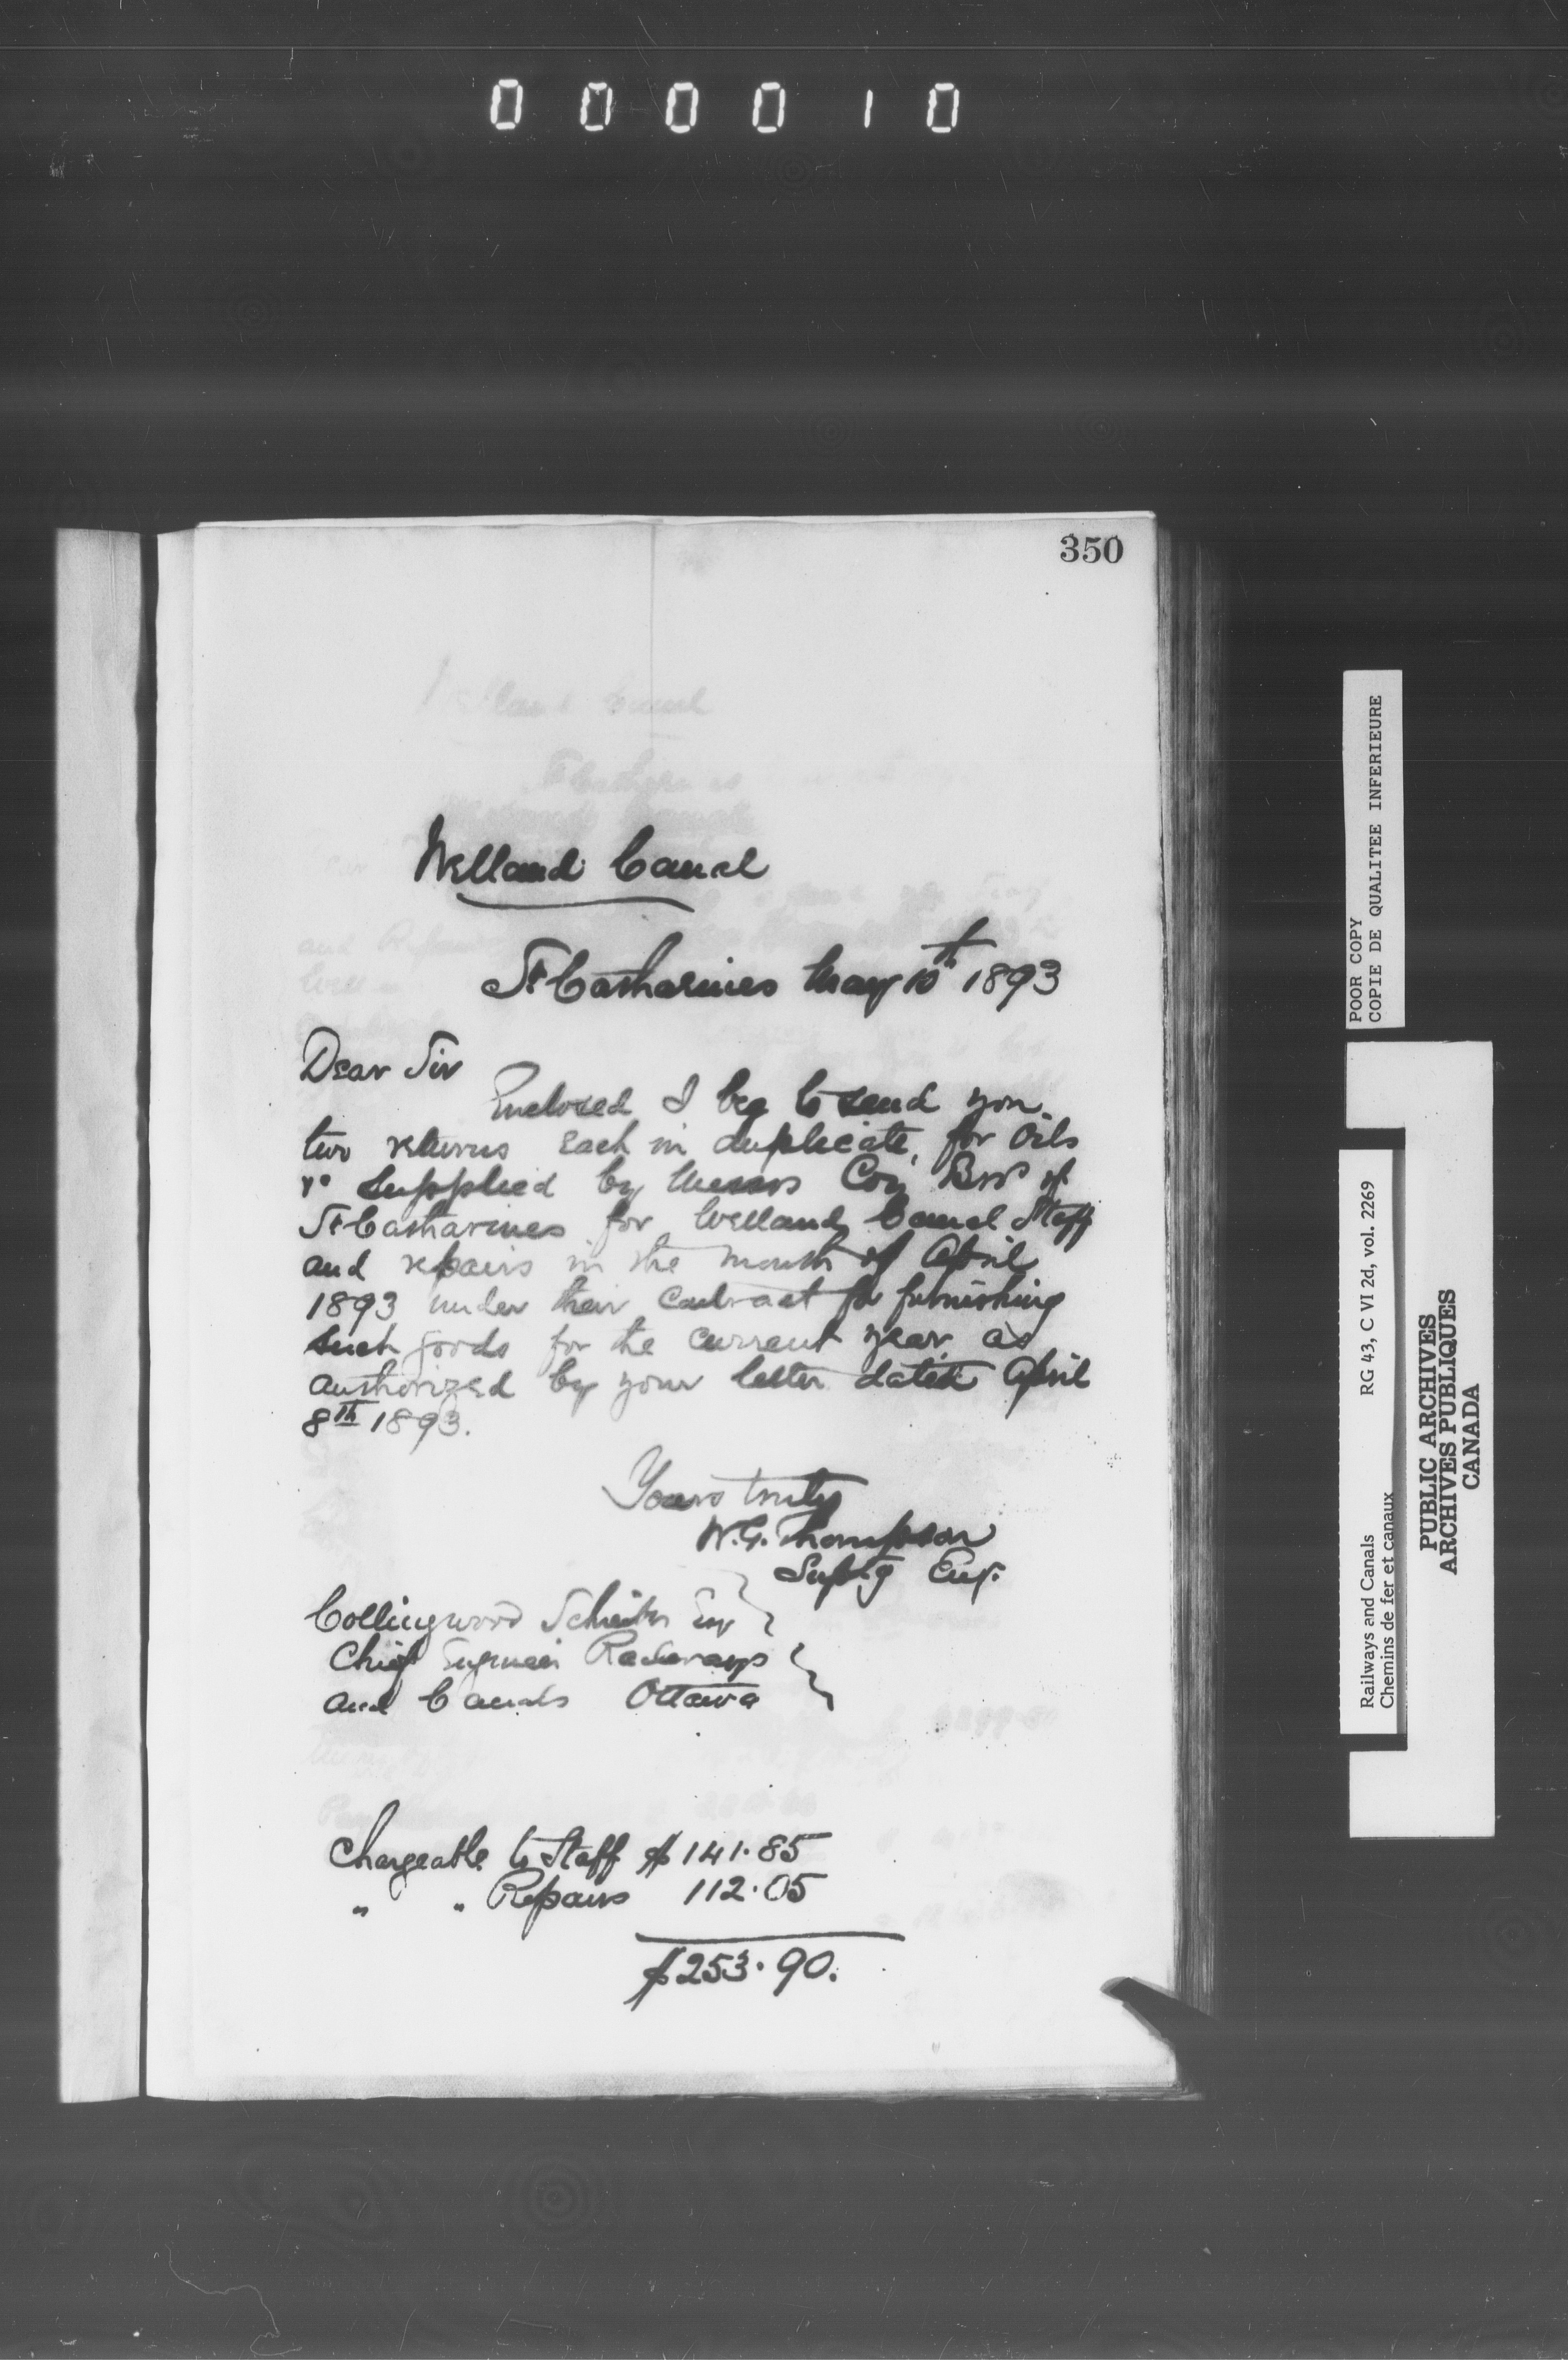 000010
350
Welland Canal
St Catharines May 10th 1893
Dear Sir
Enclosed I beg to send you
two returns each in duplicate, for Oils
&c supplied by Messrs Coy Bros of
St Catharines for Welland Canal Staff
and repairs in the month of April
1893 under their Contract for furnishing
such goods for the current year as
authorized by your letter dated April
8th 1893.
Yours truly
W.G. Thompson
Suptg Eng.
Collingwood Schreiber Esq
Chief Engineer Railways
and Canals Ottawa
Chargeable to Staff $141.85
" " Repairs 112.05
$253.90.
POOR COPY
COPIE DE QUALITEE INFERIEURE
Railways and Canals RG 43, C VI 2d, vol. 2269
Chemins de fer et canaux
PUBLIC ARCHIVES
ARCHIVES PUBLIQUES
CANADA